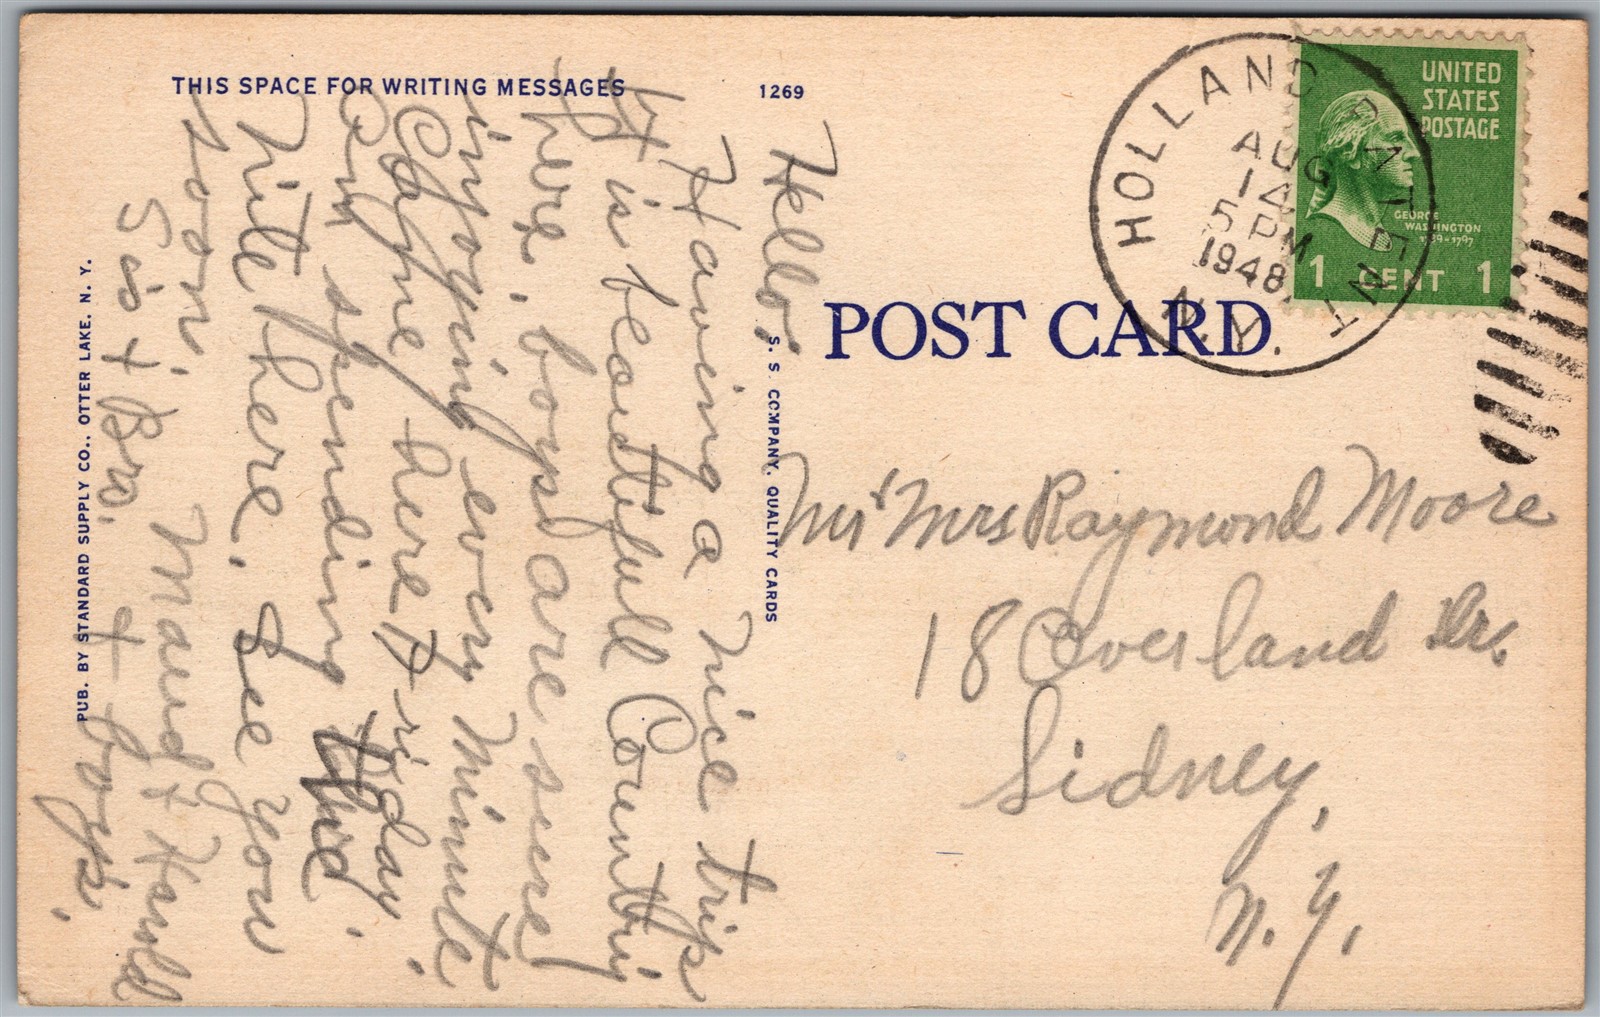 THIS SPACE FOR WRITING MESSAGES
1269
Hello,
Having a nice trip
It is beautifull Country
here. boys are sure
injoying every Minute
Came here Friday.
Am spending the
nite here. See you
soon'
Maud & Harold
Sis + Bro. + boys.
PUB. BY STANDARD SUPPLY CO., OTTER LAKE, N. Y.
S. S. COMPANY, QUALITY CARDS
POST CARD
HOLLAND PATENT
N.Y.
AUG
14
5 PM
1948
UNITED
STATES
POSTAGE
GEORGE
WASHINGTON
1789-1797
1 CENT 1
Mr & Mrs Raymond Moore
18 Overland Dr.
Sidney,
N.Y.